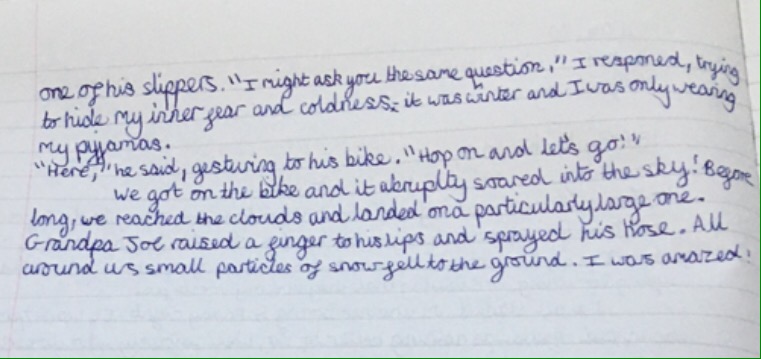 one of his slippers. "I might ask you the same question," I responed, trying
to hide my inner fear and coldness: it was winter and I was only wearing
my pyjamas.
"Here," he said, gesturing to his bike. "Hop on and let's go!"
we got on the bike and it abruplty soared into the sky! Before
long, we reached the clouds and landed on a particularly large one.
Grandpa Joe raised a finger to his lips and sprayed his hose. All
around us small particles of snow fell to the ground. I was amazed!